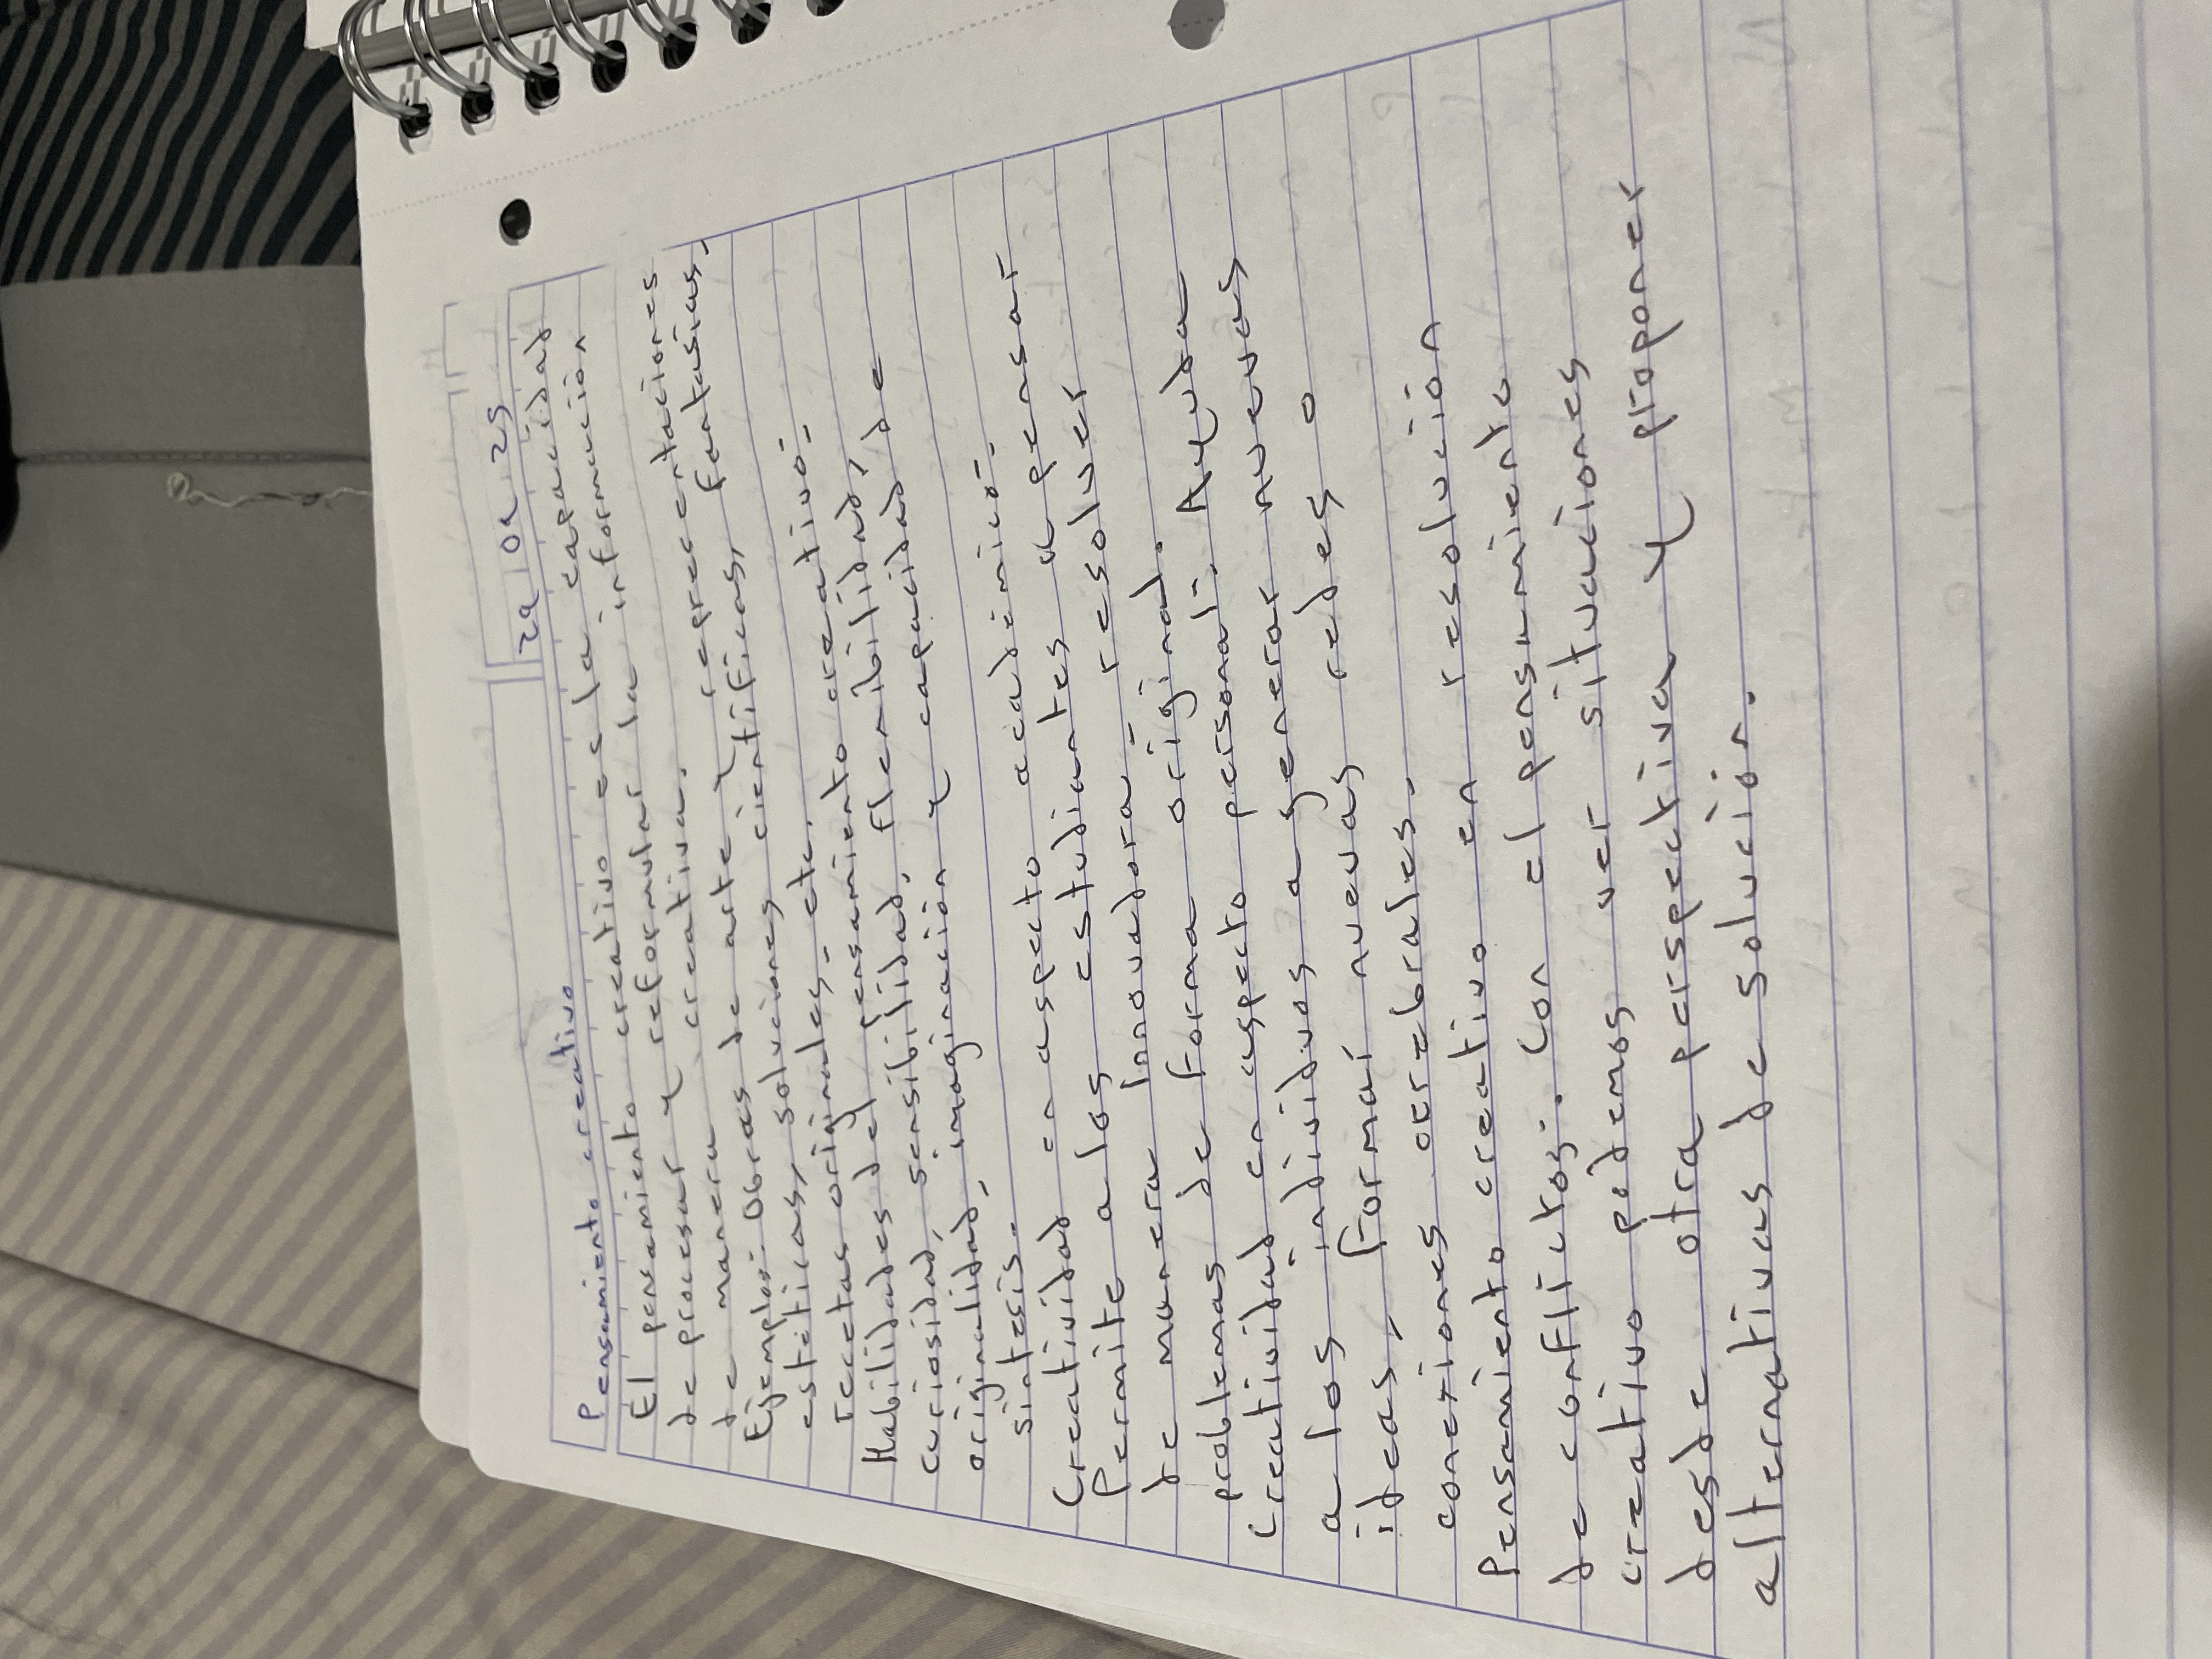 29 10a 25
Pensamiento creativo
El pensamiento creativo es la capacidad
de procesar y reformular la información
de manera creativa.
Ejemplo: Obras de arte y representaciones
estéticas, soluciones científicas, fantasias,
recetas originales, etc.
Habilidades del pensamiento creativo:
curiosidad, sensibilidad, flexibilidad,
originalidad, imaginación y capacidad de
sintesis.
Creatividad en aspecto académico:
Permite a los estudiantes a pensar
de manera innovadora, resolver
problemas de forma original.
Creatividad en aspecto personal: Ayuda
a los individuos a generar nuevas
ideas, formar nuevas redes o
conexiones cerebrales.
Pensamiento creativo en resolución
de conflictos: Con el pensamiento
creativo podemos ver situaciones
desde otra perspectiva y proponer
alternativas de solución.